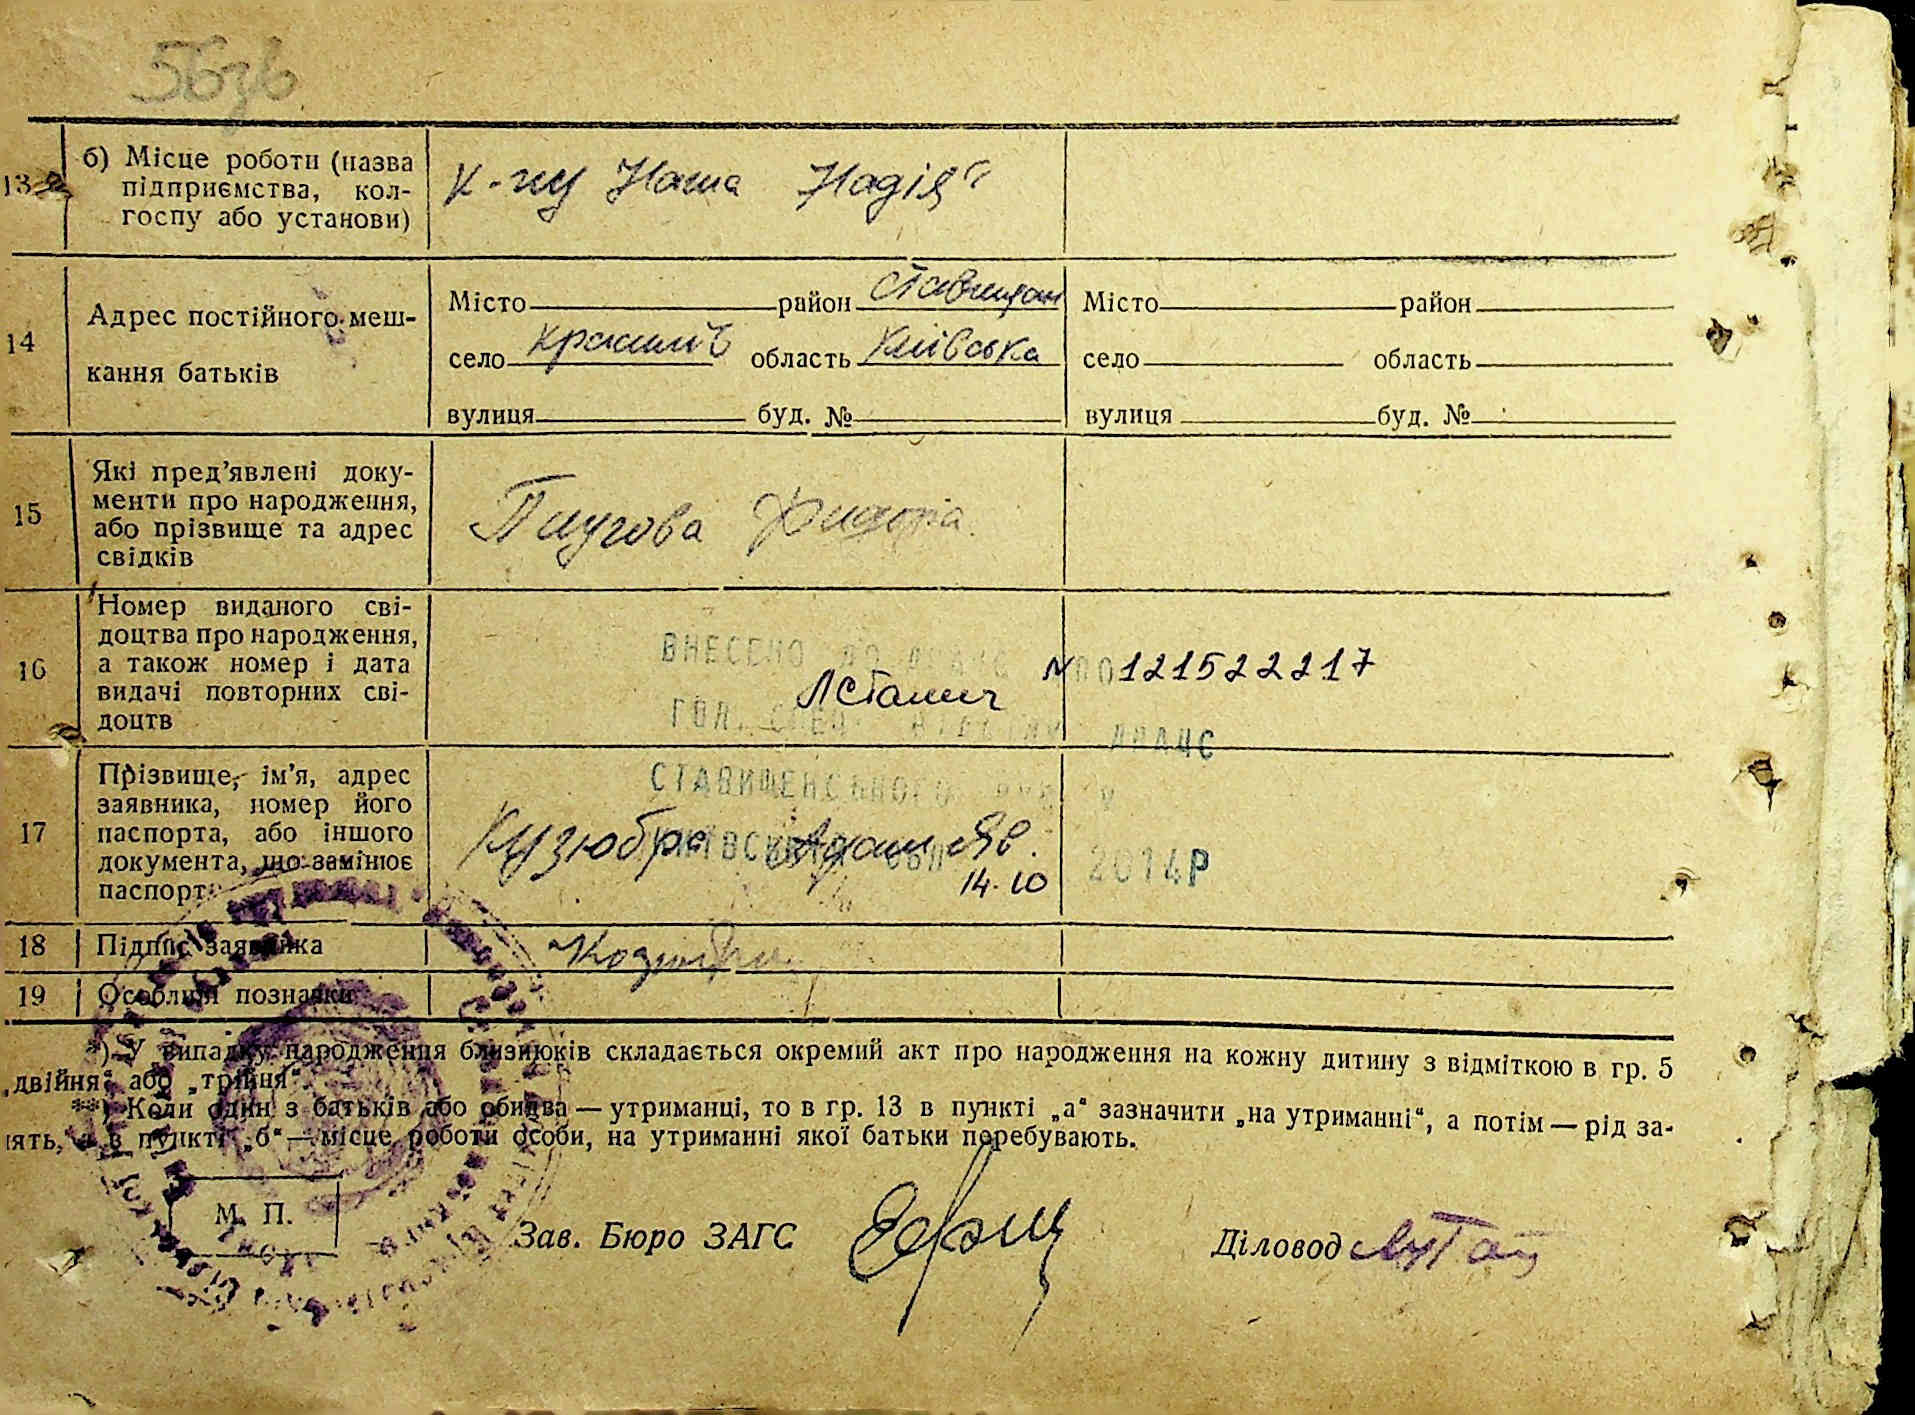 563в
13
б) Місце роботи (назва
підприємства, кол-
госпу або установи)
к-пу Наша Надія"
14
Адрес постійного меш-
кання батьків
Місто район Ставищан
село область Київська
вулиця буд. №
Місто район
село область
вулиця буд. №
15
Які пред'явлені доку-
менти про народження,
або прізвище та адрес
свідків
16
Номер виданого сві-
доцтва про народження,
а також номер і дата
видачі повторних сві-
доцтв
ВНЕСЕНО ДО ДРАЦС № 00121522217
ГОЛ. СПЕЦ. ДРАЦС
17
Прізвище, ім'я, адрес
заявника, номер його
паспорта, або іншого
документа, що замінює
паспорт
СТАВИЩЕНСЬКОГО
Кузюбра Адам Яв.
14.10 2014Р
18
Підпис заявника
19
Особливі позначки
*) У випадку народження близнюків складається окремий акт про народження на кожну дитину з відміткою в гр. 5
„двійня" або „трійня".
**) Коли один з батьків або обидва — утриманці, то в гр. 13 в пункті „а" зазначити „на утриманні", а потім — рід за-
нять, а в пункті „б" — місце роботи особи, на утриманні якої батьки перебувають.
М. П.
Зав. Бюро ЗАГС
Діловод